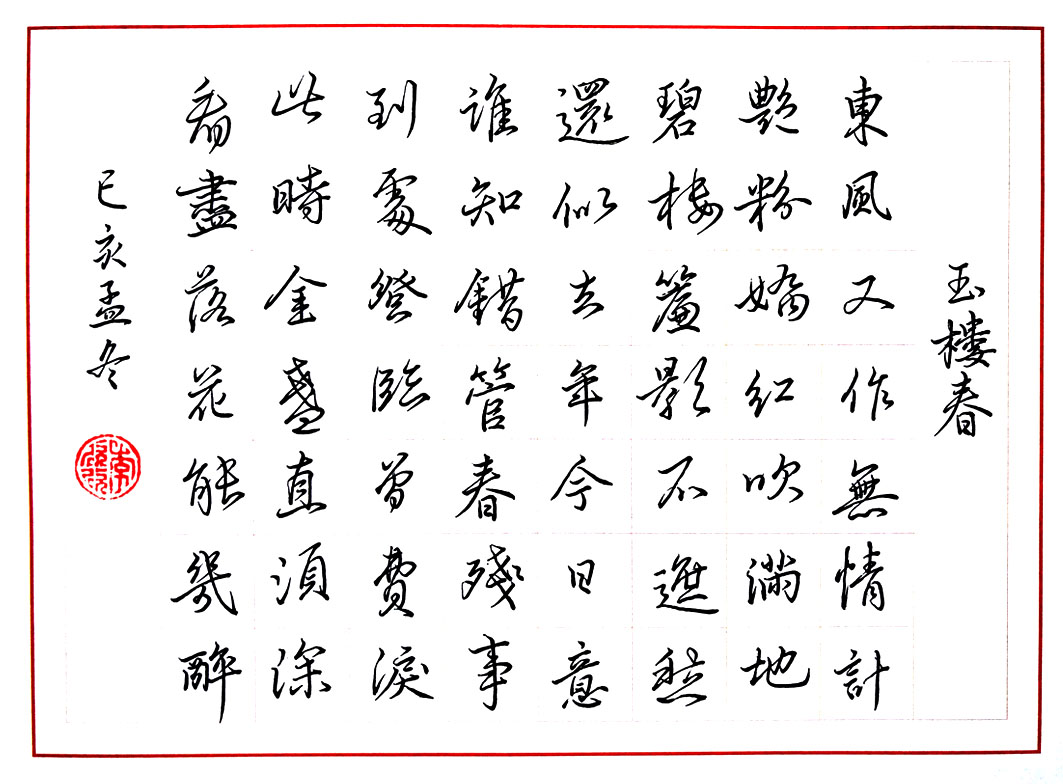 玉樓春
東風又作無情計
艷粉嬌紅吹滿地
碧樓簾影不遮愁
還似去年今日意
誰知錯管春殘事
到處登臨曾費淚
此時金盞直須深
看盡落花能幾醉
己亥孟冬